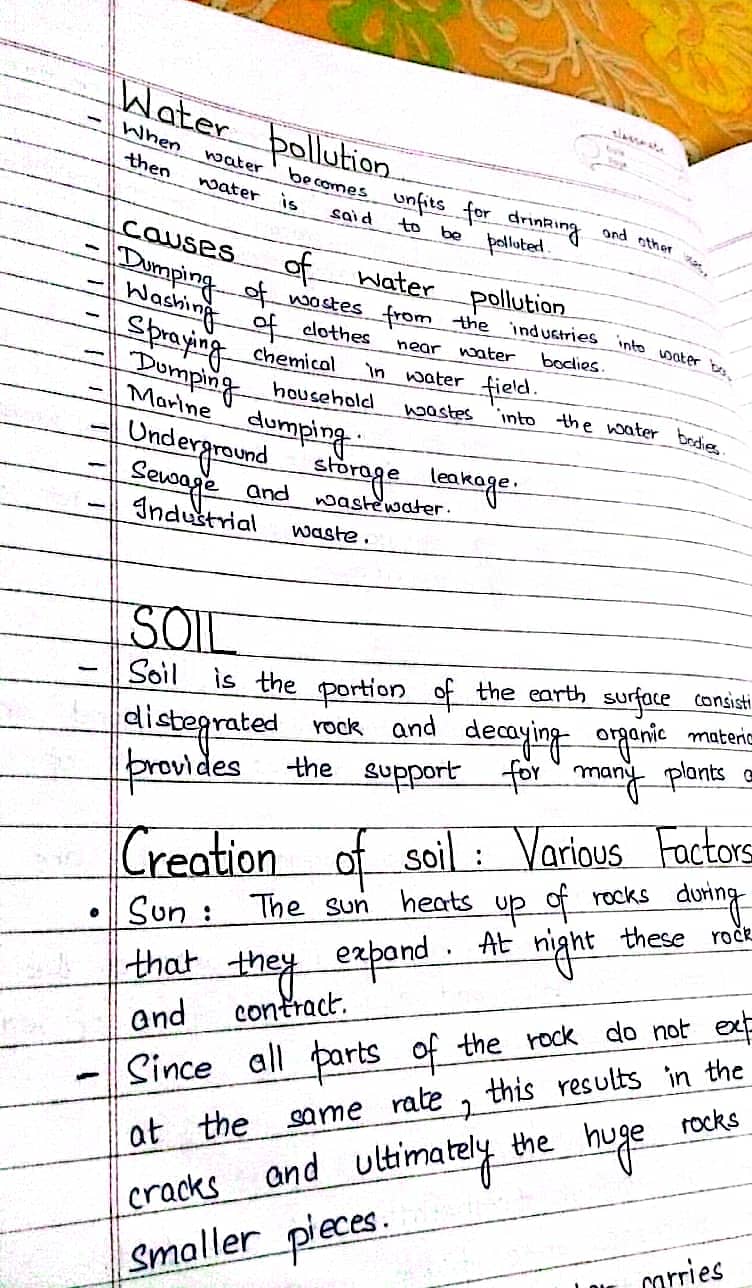 Water pollution
- When water becomes unfits for drinking and other uses,
then water is said to be polluted.
causes of water pollution
- Dumping of wastes from the industries into water bo
- Washing of clothes near water bodies.
- Spraying chemical in water field.
- Dumping household wastes into the water bodies.
- Marine dumping.
- Underground storage leakage.
- Sewage and wastewater.
- Industrial waste.
SOIL
- Soil is the portion of the earth surface consisti
distegrated rock and decaying organic materia
provides the support for many plants a
Creation of soil : Various Factors
• Sun : The sun heats up of rocks during
that they expand. At night these rock
and contract.
- Since all parts of the rock do not exp
at the same rate, this results in the
cracks and ultimately the huge rocks
smaller pieces.
carries